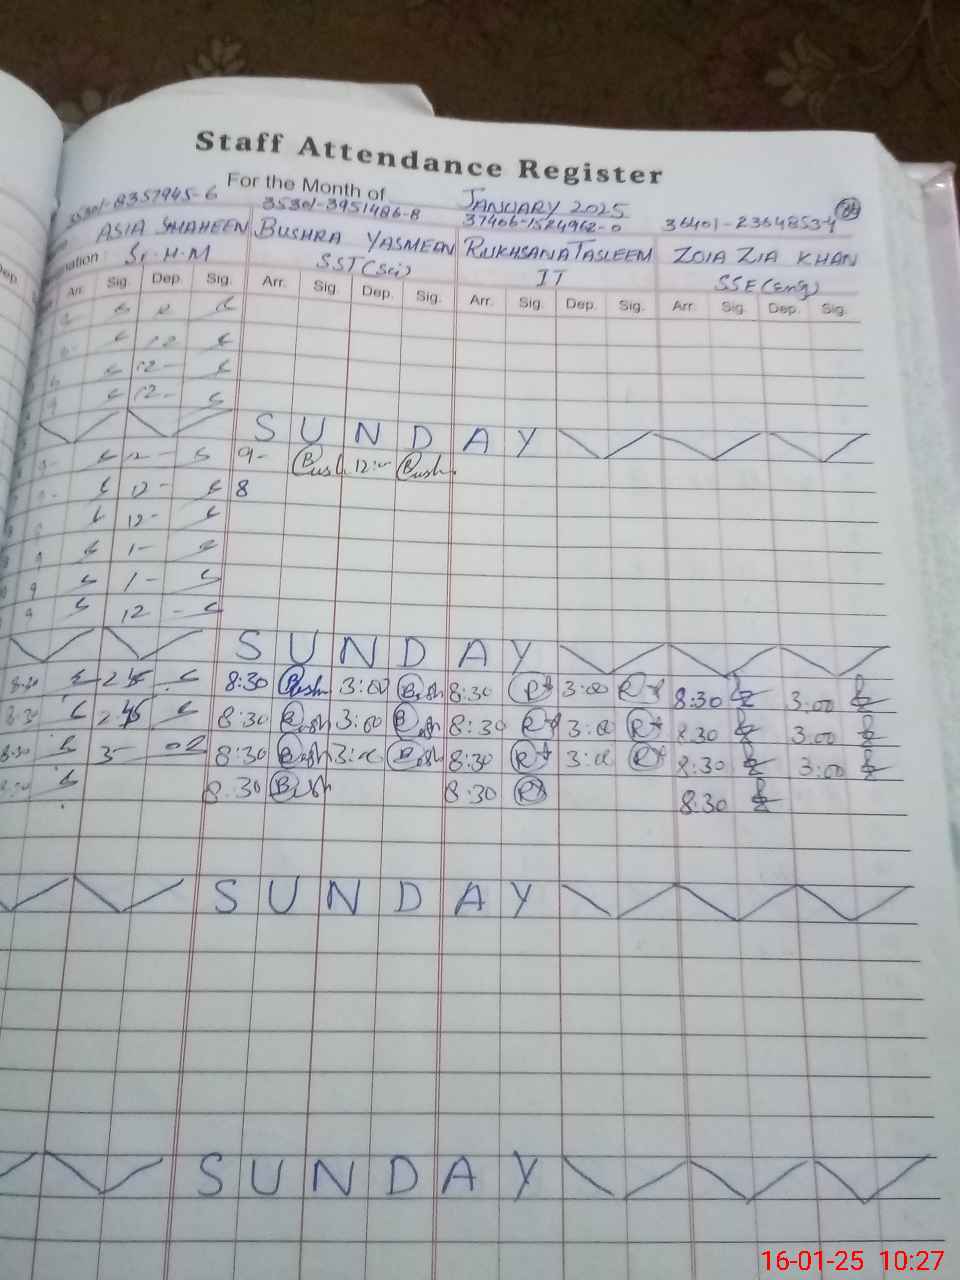 Staff Attendance Register
For the Month of JANUARY 2025
35301-8357945-6 35301-3951486-8 37406-1524962-0
ASIA SHAHEEN BUSHRA YASMEEN RUKHSANA TASLEEM ZOIA ZIA KHAN
Sr. H-M SST (Sci) IT SSE (Eng)
Arr. Sig. Dep. Sig. Arr. Sig. Dep. Sig. Arr. Sig. Dep. Sig. Arr. Sig. Dep. Sig.
12
12-
12-
SUNDAY
12- 9- Bush 12:- Bush
12- 8
12-
9 1-
9 1-
9 12
SUNDAY
8:30 2 45 8:30 Bush 3:00 Bush 8:30 R 3:00 R 8:30 3:00
8:30 2 45 8:30 Bush 3:00 Bush 8:30 R 3:00 R 8:30 3:00
8:30 3- 8:30 Bush 3:00 Bush 8:30 R 3:00 R 8:30 3:00
8:30 Bush 8:30 R 8:30
SUNDAY
SUNDAY
16-01-25 10:27